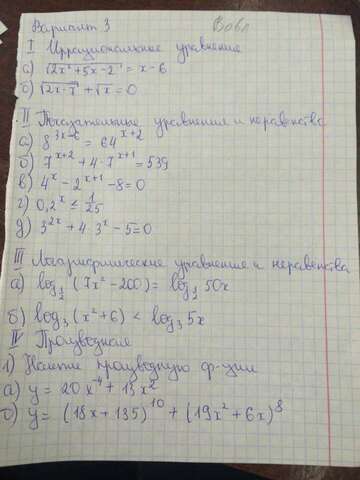 Вариант 3
I Иррациональное уравнение
а) √(2x² + 5x - 2) = x - 6
б) √(2x - 7) + √x = 0
II Показательные уравнения и неравенства
а) 8^(3x-6) = 64^(x+2)
б) 7^(x+2) + 4 · 7^(x+1) = 539
в) 4^x - 2^(x+1) - 8 = 0
г) 0,2^x ≤ 1/25
д) 3^(2x) + 4 · 3^x - 5 = 0
III Логарифмические уравнение и неравенства
а) log_(1/2) (7x² - 200) = log_(1/2) 50x
б) log₃ (x² + 6) < log₃ 5x
IV Производная
1) Найти производную ф-ции
а) y = 20x⁻⁴ + 13x²
б) y = (18x + 135)¹⁰ + (19x² + 6x)⁸